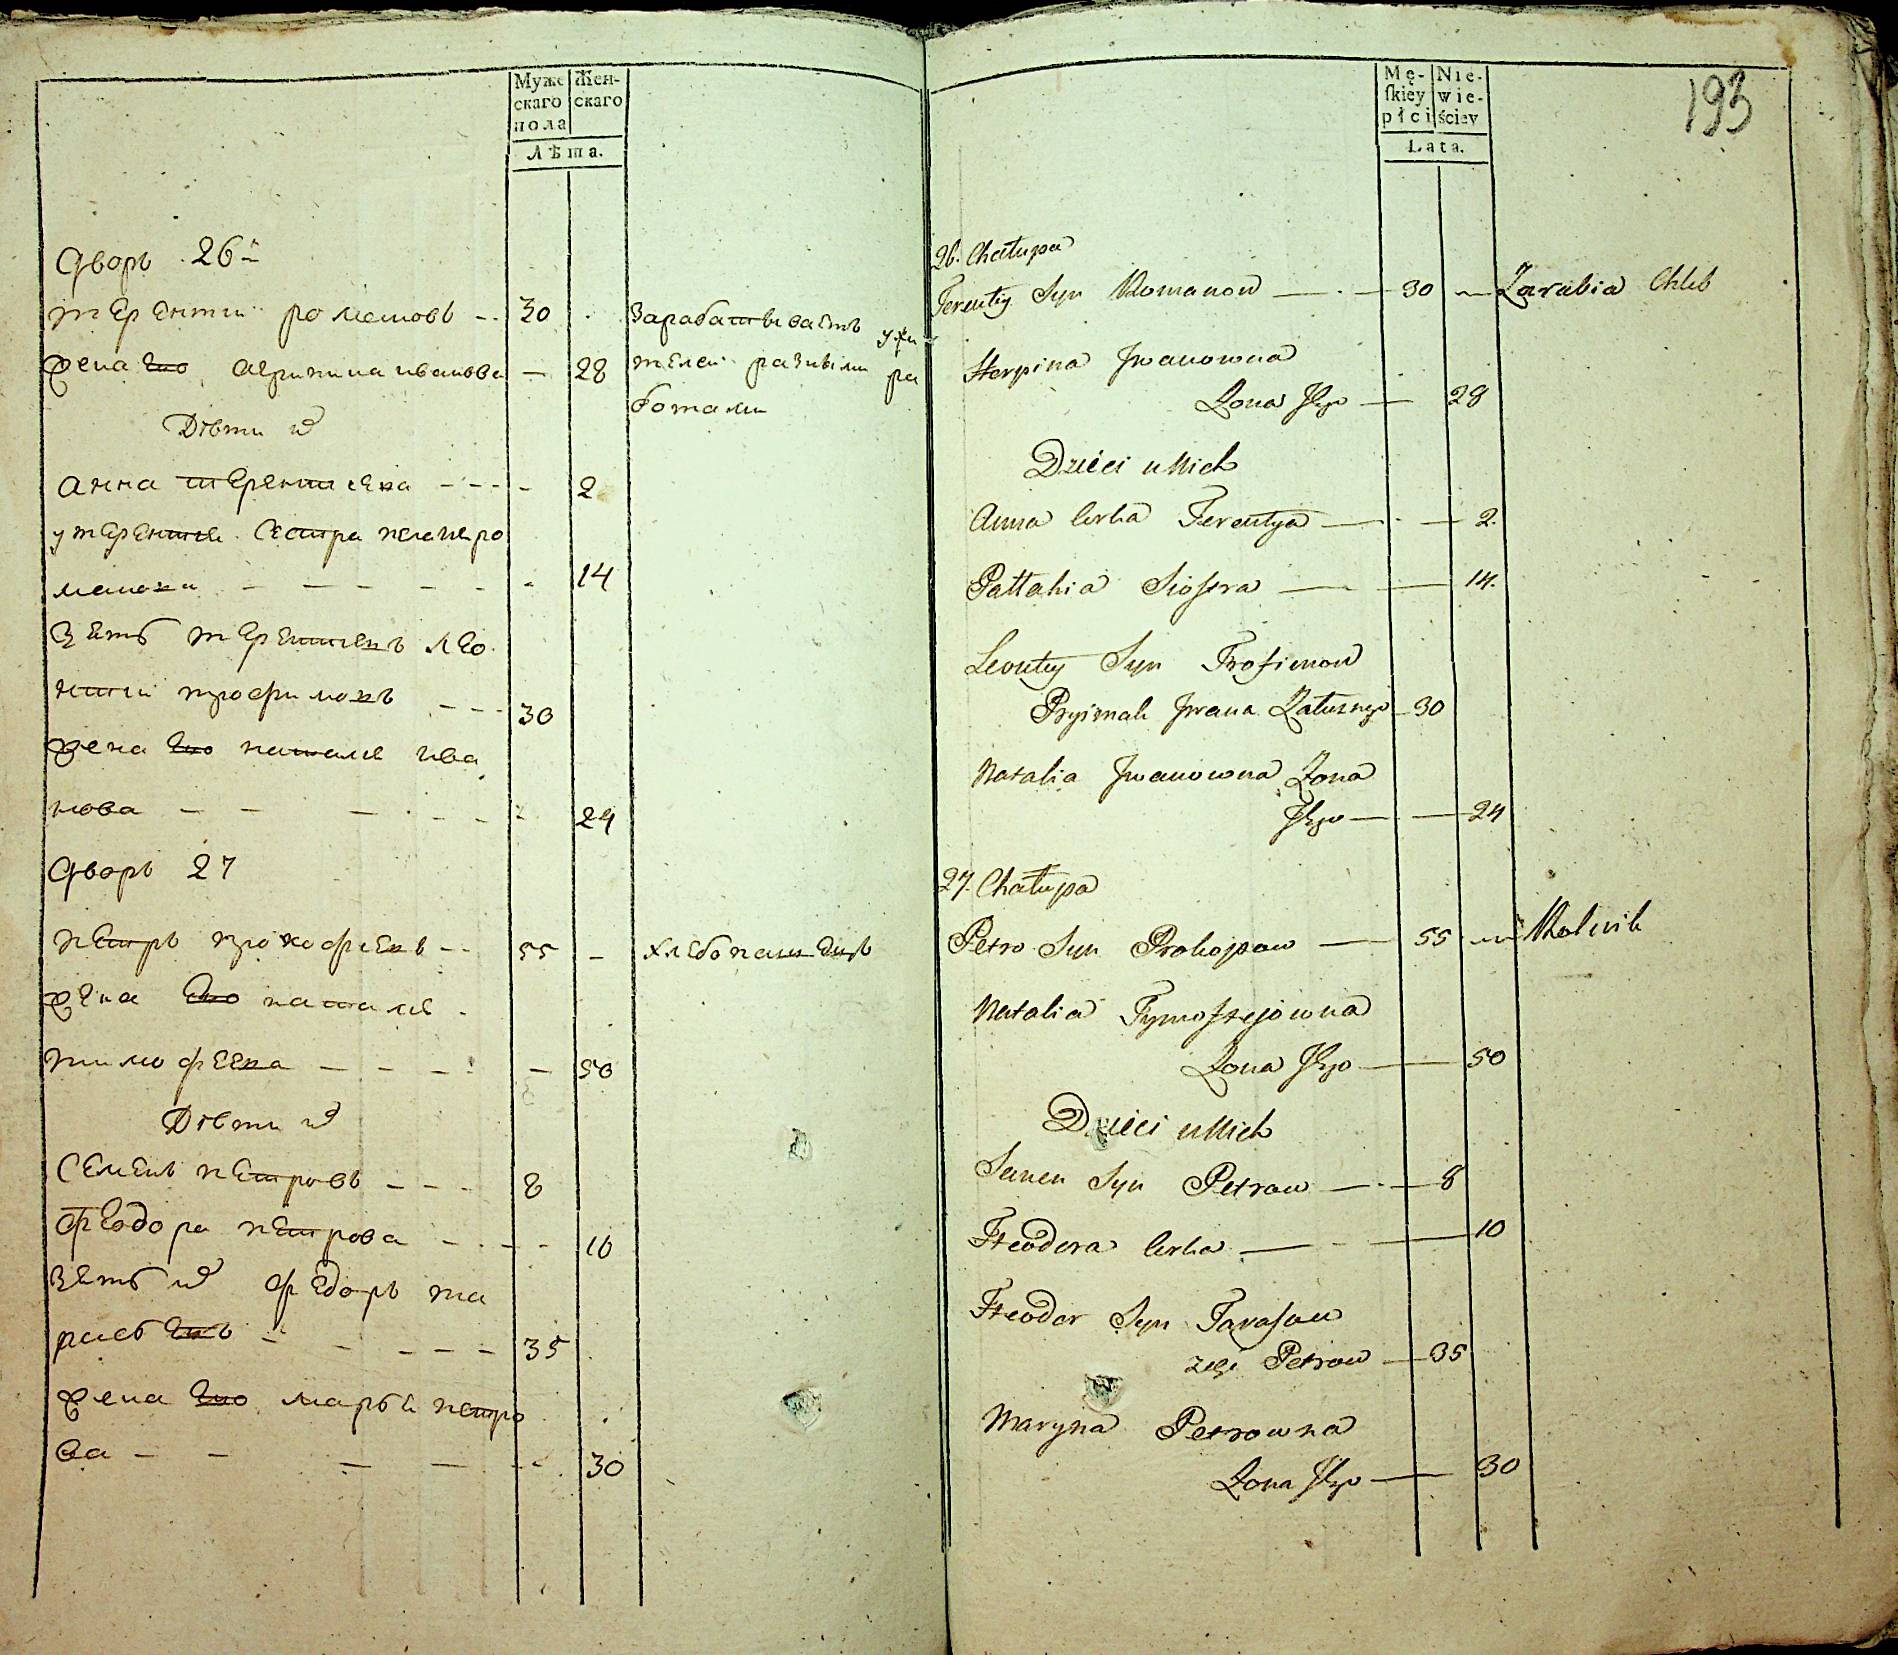 Муже Жен-
скаго скаго
пола
Лѣта.
Дворъ 26й
терентій романовъ 30
жена его агрипина иванова 28
зарабатываетъ у жи
телей разными ра
ботами
Дѣти их
анна терентиева 2
у терентия сестра пелагея ро
манова 14
зеть терентиевъ лео
нтий трофимовъ 30
жена его наталя ива
нова 24
Дворъ 27
петръ прокофиевъ 55 хлебопашецъ
жена его наталя
тимофеева 50
Дѣти их
семенъ петровъ 8
феодора петрова 10
зеть их федоръ та
расевъ 35
жена его марья петро
ва 30
193
Mę- Nie-
ſkiey wie-
płci ściey
Lata.
26. Chałupa
Terenty Syn Romanow 30 Zarabia Chlib
Herpina Jwanowna
Zona Jego 28
Dzieci u Nich
Anna Corka Terentya 2.
Pallahia Siostra 14.
Leonty Syn Trofimow
Pryimak Jwana Załusnego 30
Natalia Jwanowna Zona
Jego 24
27. Chałupa
Petro Syn Prokopow 55 Rolnik
Natalia Tymoftejowna
Zona Jego 50
Dzieci u Nich
Semen Syn Petrow 8
Fteodora Corka 10
Fteodor Syn Tarasow
zięć Petrow 35
Maryna Petrowna
Zona Jego 30